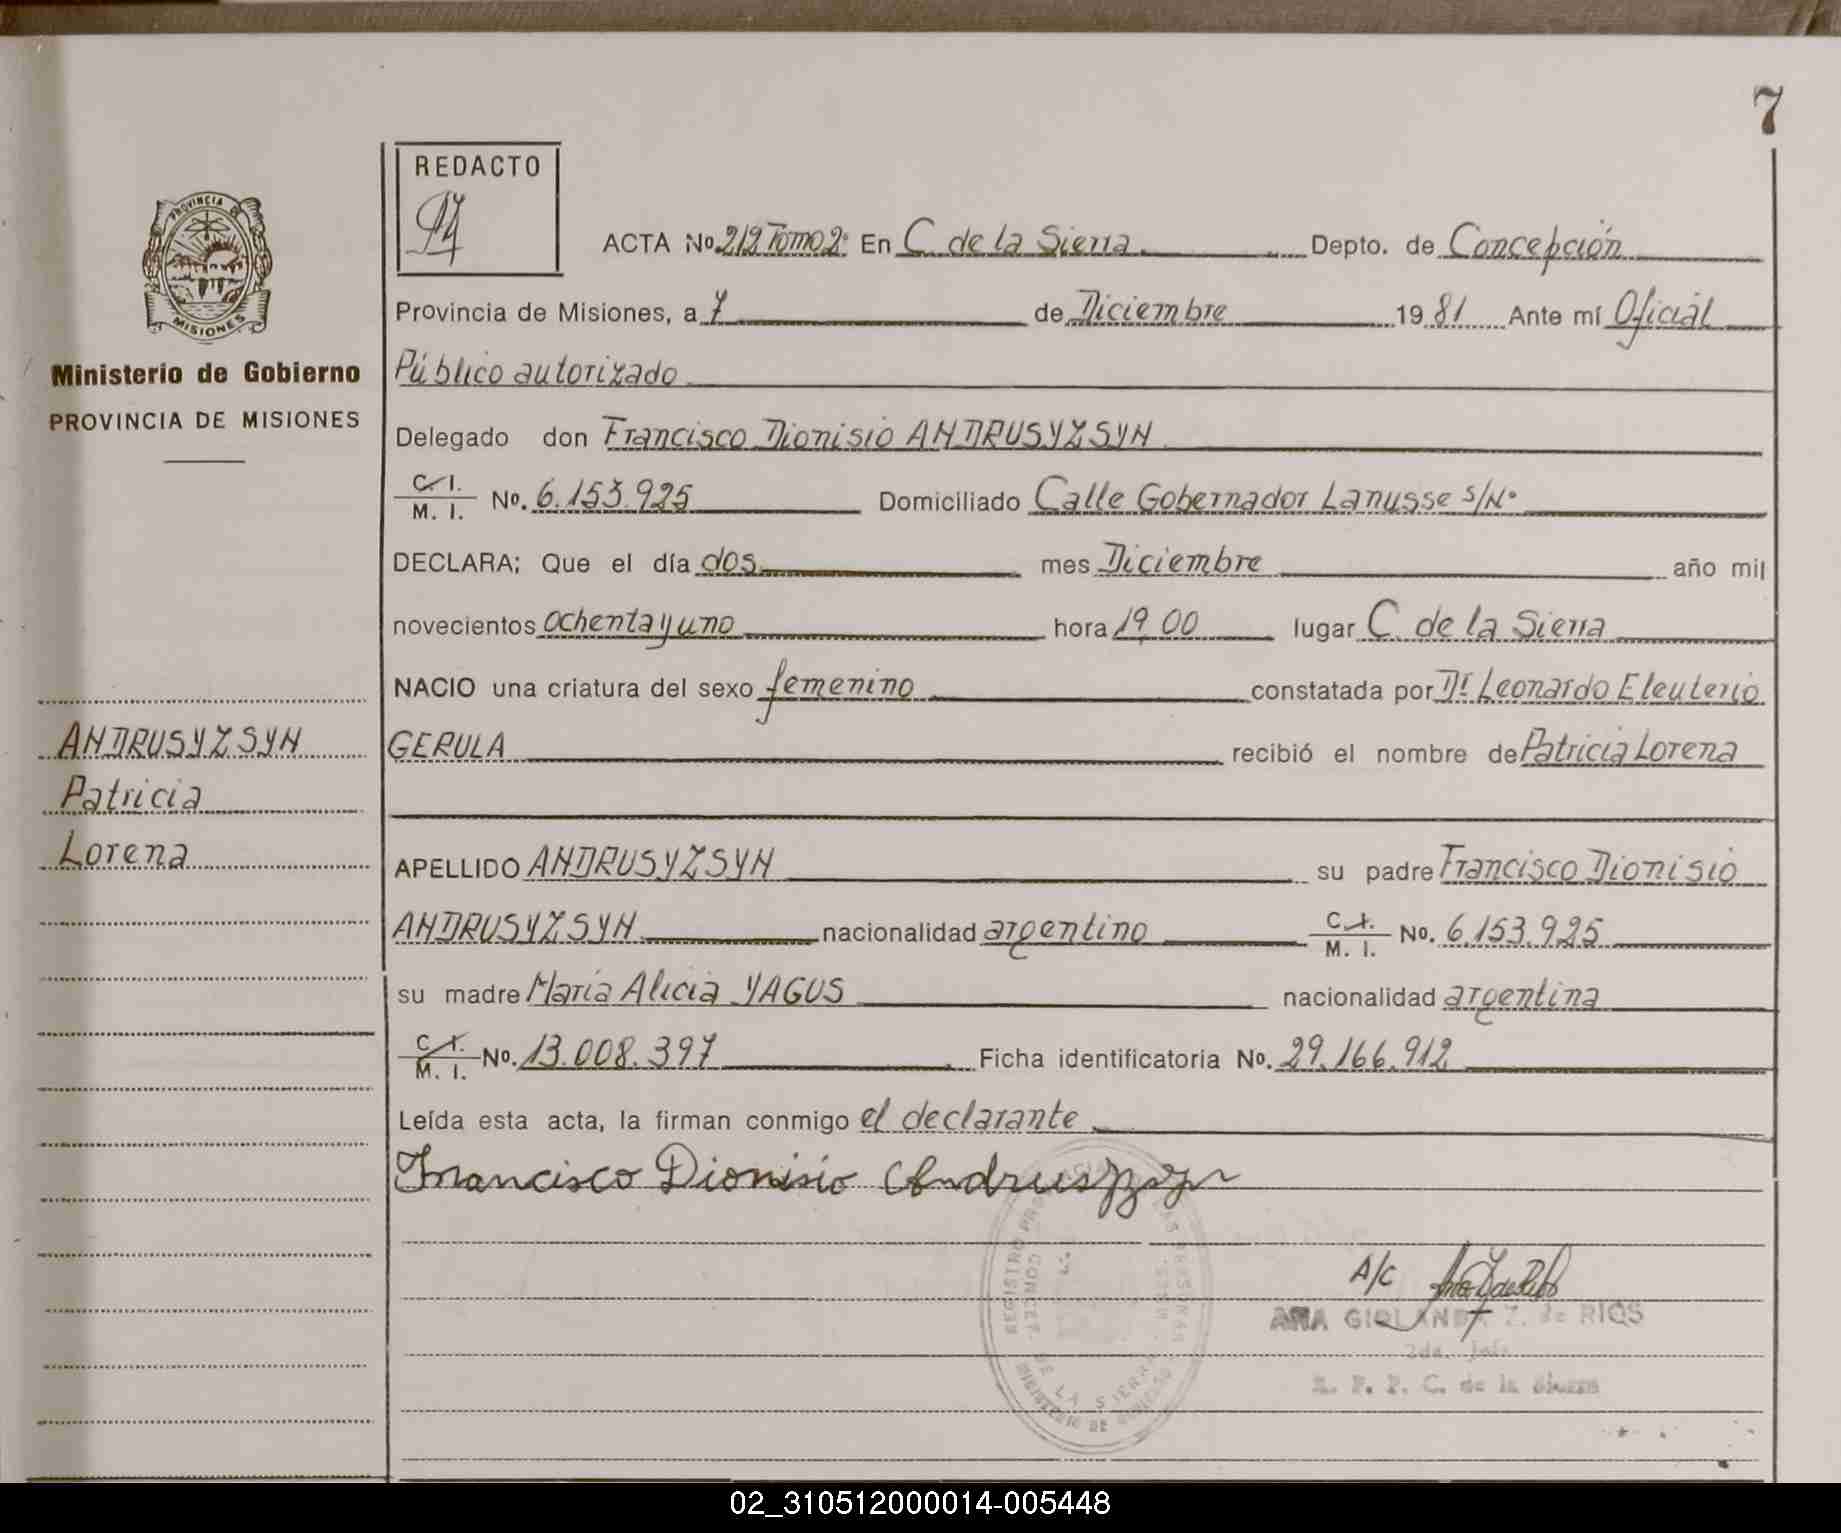 7
REDACTO
PROVINCIA DE
MISIONES
Ministerio de Gobierno
PROVINCIA DE MISIONES
ACTA Nº 212 Tomo 2º En C. de la Sierra Depto. de Concepción
Provincia de Misiones, a 7 de Diciembre 1981 Ante mí Oficiál
Público autorizado
Delegado don Francisco Dionisio ANDRUSYZSYN
C. I.
M. I. Nº. 6.153.925 Domiciliado Calle Gobernador Lanusse s/Nº
DECLARA; Que el día dos mes Diciembre año mil
novecientos ochenta y uno hora 19,00 lugar C. de la Sierra
NACIO una criatura del sexo femenino constatada por Dr Leonardo Eleuterio
GERULA recibió el nombre de Patricia Lorena
ANDRUSYZSYN
Patricia
Lorena
APELLIDO ANDRUSYZSYN su padre Francisco Dionisio
ANDRUSYZSYN nacionalidad argentino C. I.
M. I. Nº. 6.153.925
su madre María Alicia YAGUS nacionalidad argentina
C. I.
M. I. Nº. 13.008.397 Ficha identificatoria Nº. 29.166.912
Leída esta acta, la firman conmigo el declarante
Francisco Dionisio Andrusyzsyn
A/C
ANA GIOLANDA Z. de RIOS
C. de la Sierra
REGISTRO
DE LA SIERRA
MINISTERIO DE GOBIERNO
02_310512000014-005448